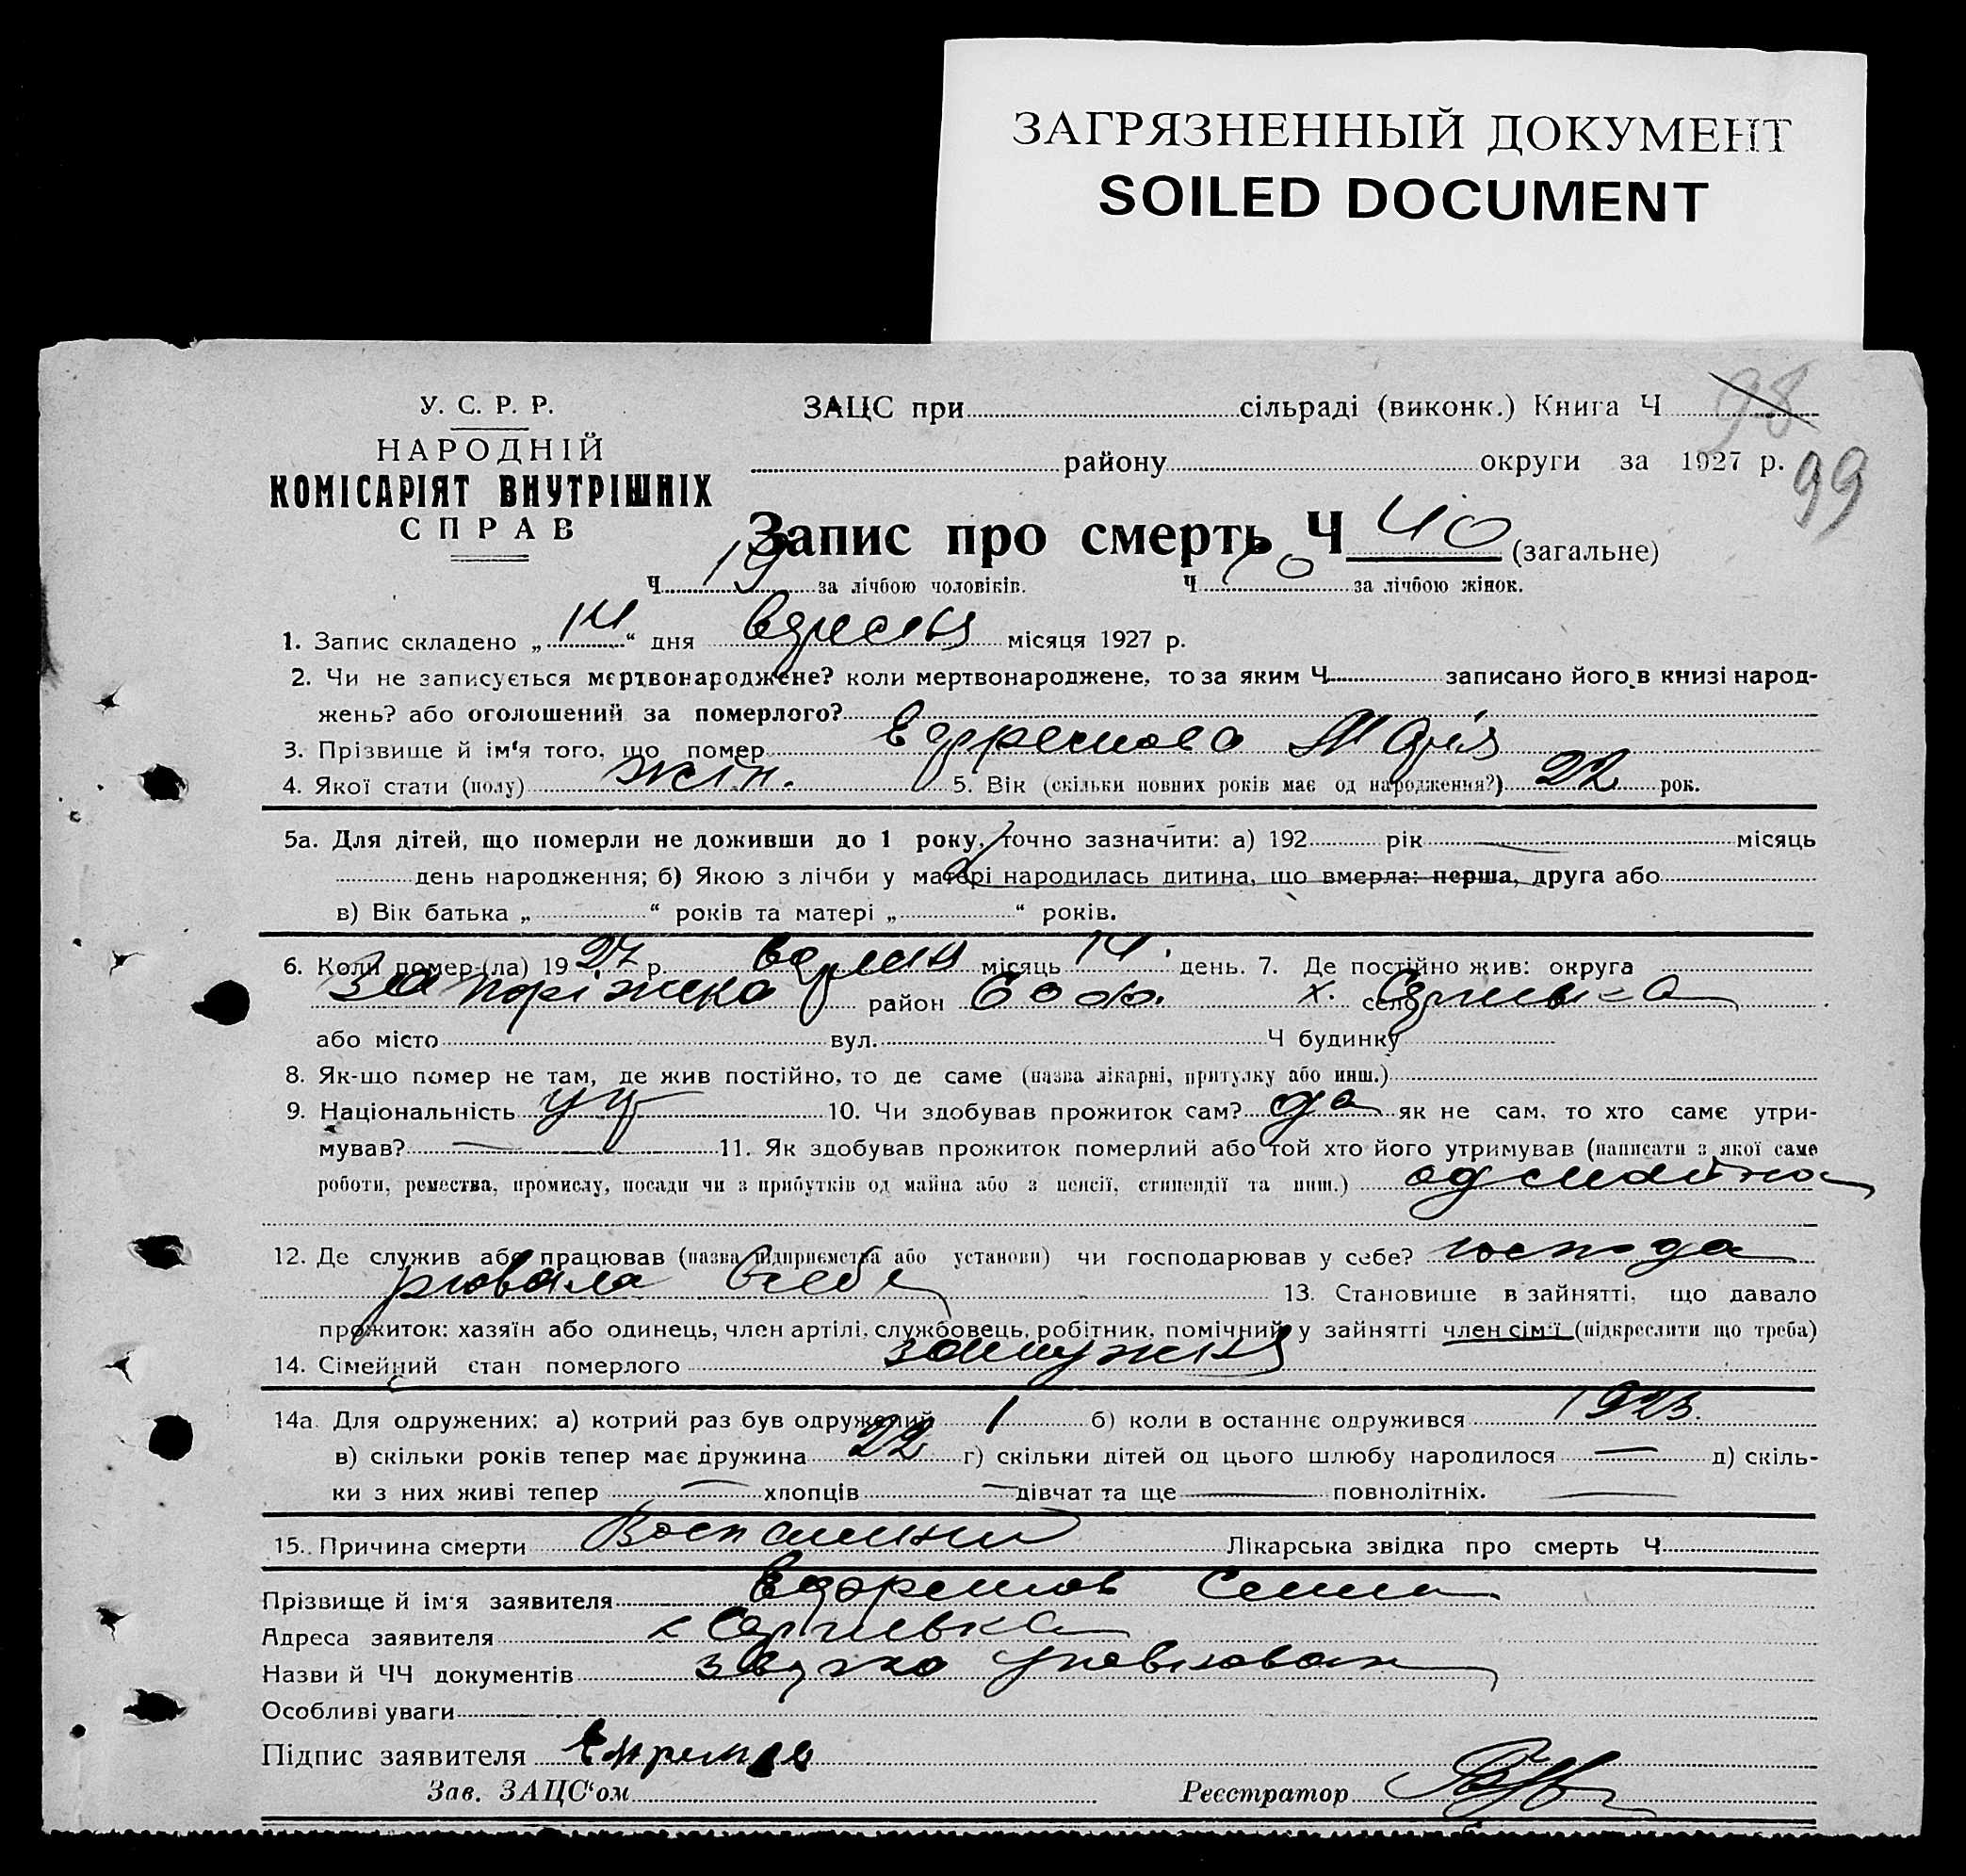 ЗАГРЯЗНЕННЫЙ ДОКУМЕНТ
SOILED DOCUMENT
У. С. Р. Р.
НАРОДНІЙ
КОМІСАРІЯТ ВНУТРІШНІХ
СПРАВ
ЗАЦС при сільраді (виконк.) Книга Ч 98
району округи за 1927 р. 99
Запис про смерть Ч 40 (загальне)
Ч 19 за лічбою чоловіків. Ч за лічбою жінок.
1. Запис складено „14“ дня вересня місяця 1927 р.
2. Чи не записується мертвонароджене? коли мертвонароджене, то за яким Ч записано його в книзі народ-
жень? або оголошений за померлого?
3. Прізвище й ім'я того, що помер Марія
4. Якої стати (полу) жін. 5. Вік (скільки повних років має од народження?) 22 рок.
5а. Для дітей, що померли не доживши до 1 року, точно зазначити: а) 192 рік місяць
день народження; б) Якою з лічби у матері народилась дитина, що вмерла: перша, друга або
в) Вік батька „ “ років та матері „ “ років.
6. Коли помер-(ла) 1927 р. вересня місяць 14 день. 7. Де постійно жив: округа
Запоріжска район Софі. х. село Сергиевка
або місто вул. Ч будинку
8. Як-що помер не там, де жив постійно, то де саме (назва лікарні, притулку або инш.)
9. Національність укр 10. Чи здобував прожиток сам? да як не сам, то хто саме утри-
мував? 11. Як здобував прожиток померлий або той хто його утримував (написати з якої саме
роботи, ремества, промислу, посади чи з прибутків од майна або з пенсії, стипендії та инш.)
12. Де служив або працював (назва підприємства або установи) чи господарював у себе? господа
рювала в себе 13. Становище в зайнятті, що давало
прожиток: хазяїн або одинець, член артілі, службовець, робітник, помічний у зайнятті член сім'ї (підкреслити що треба)
14. Сімейний стан померлого замужня
14а. Для одружених: а) котрий раз був одружений 1 б) коли в останнє одружився 1923.
в) скільки років тепер має дружина 22 г) скільки дітей од цього шлюбу народилося — д) скіль-
ки з них живі тепер — хлопців — дівчат та ще — повнолітніх. —
15. Причина смерти Лікарська звідка про смерть Ч
Прізвище й ім'я заявителя
Адреса заявителя х Сергиевка
Назви й ЧЧ документів
Особливі уваги
Підпис заявителя
Зав. ЗАЦС'ом Реєстратор